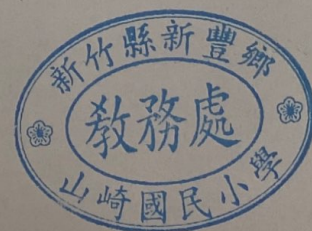 新竹縣新豐鄉
教務處
山崎國民小學